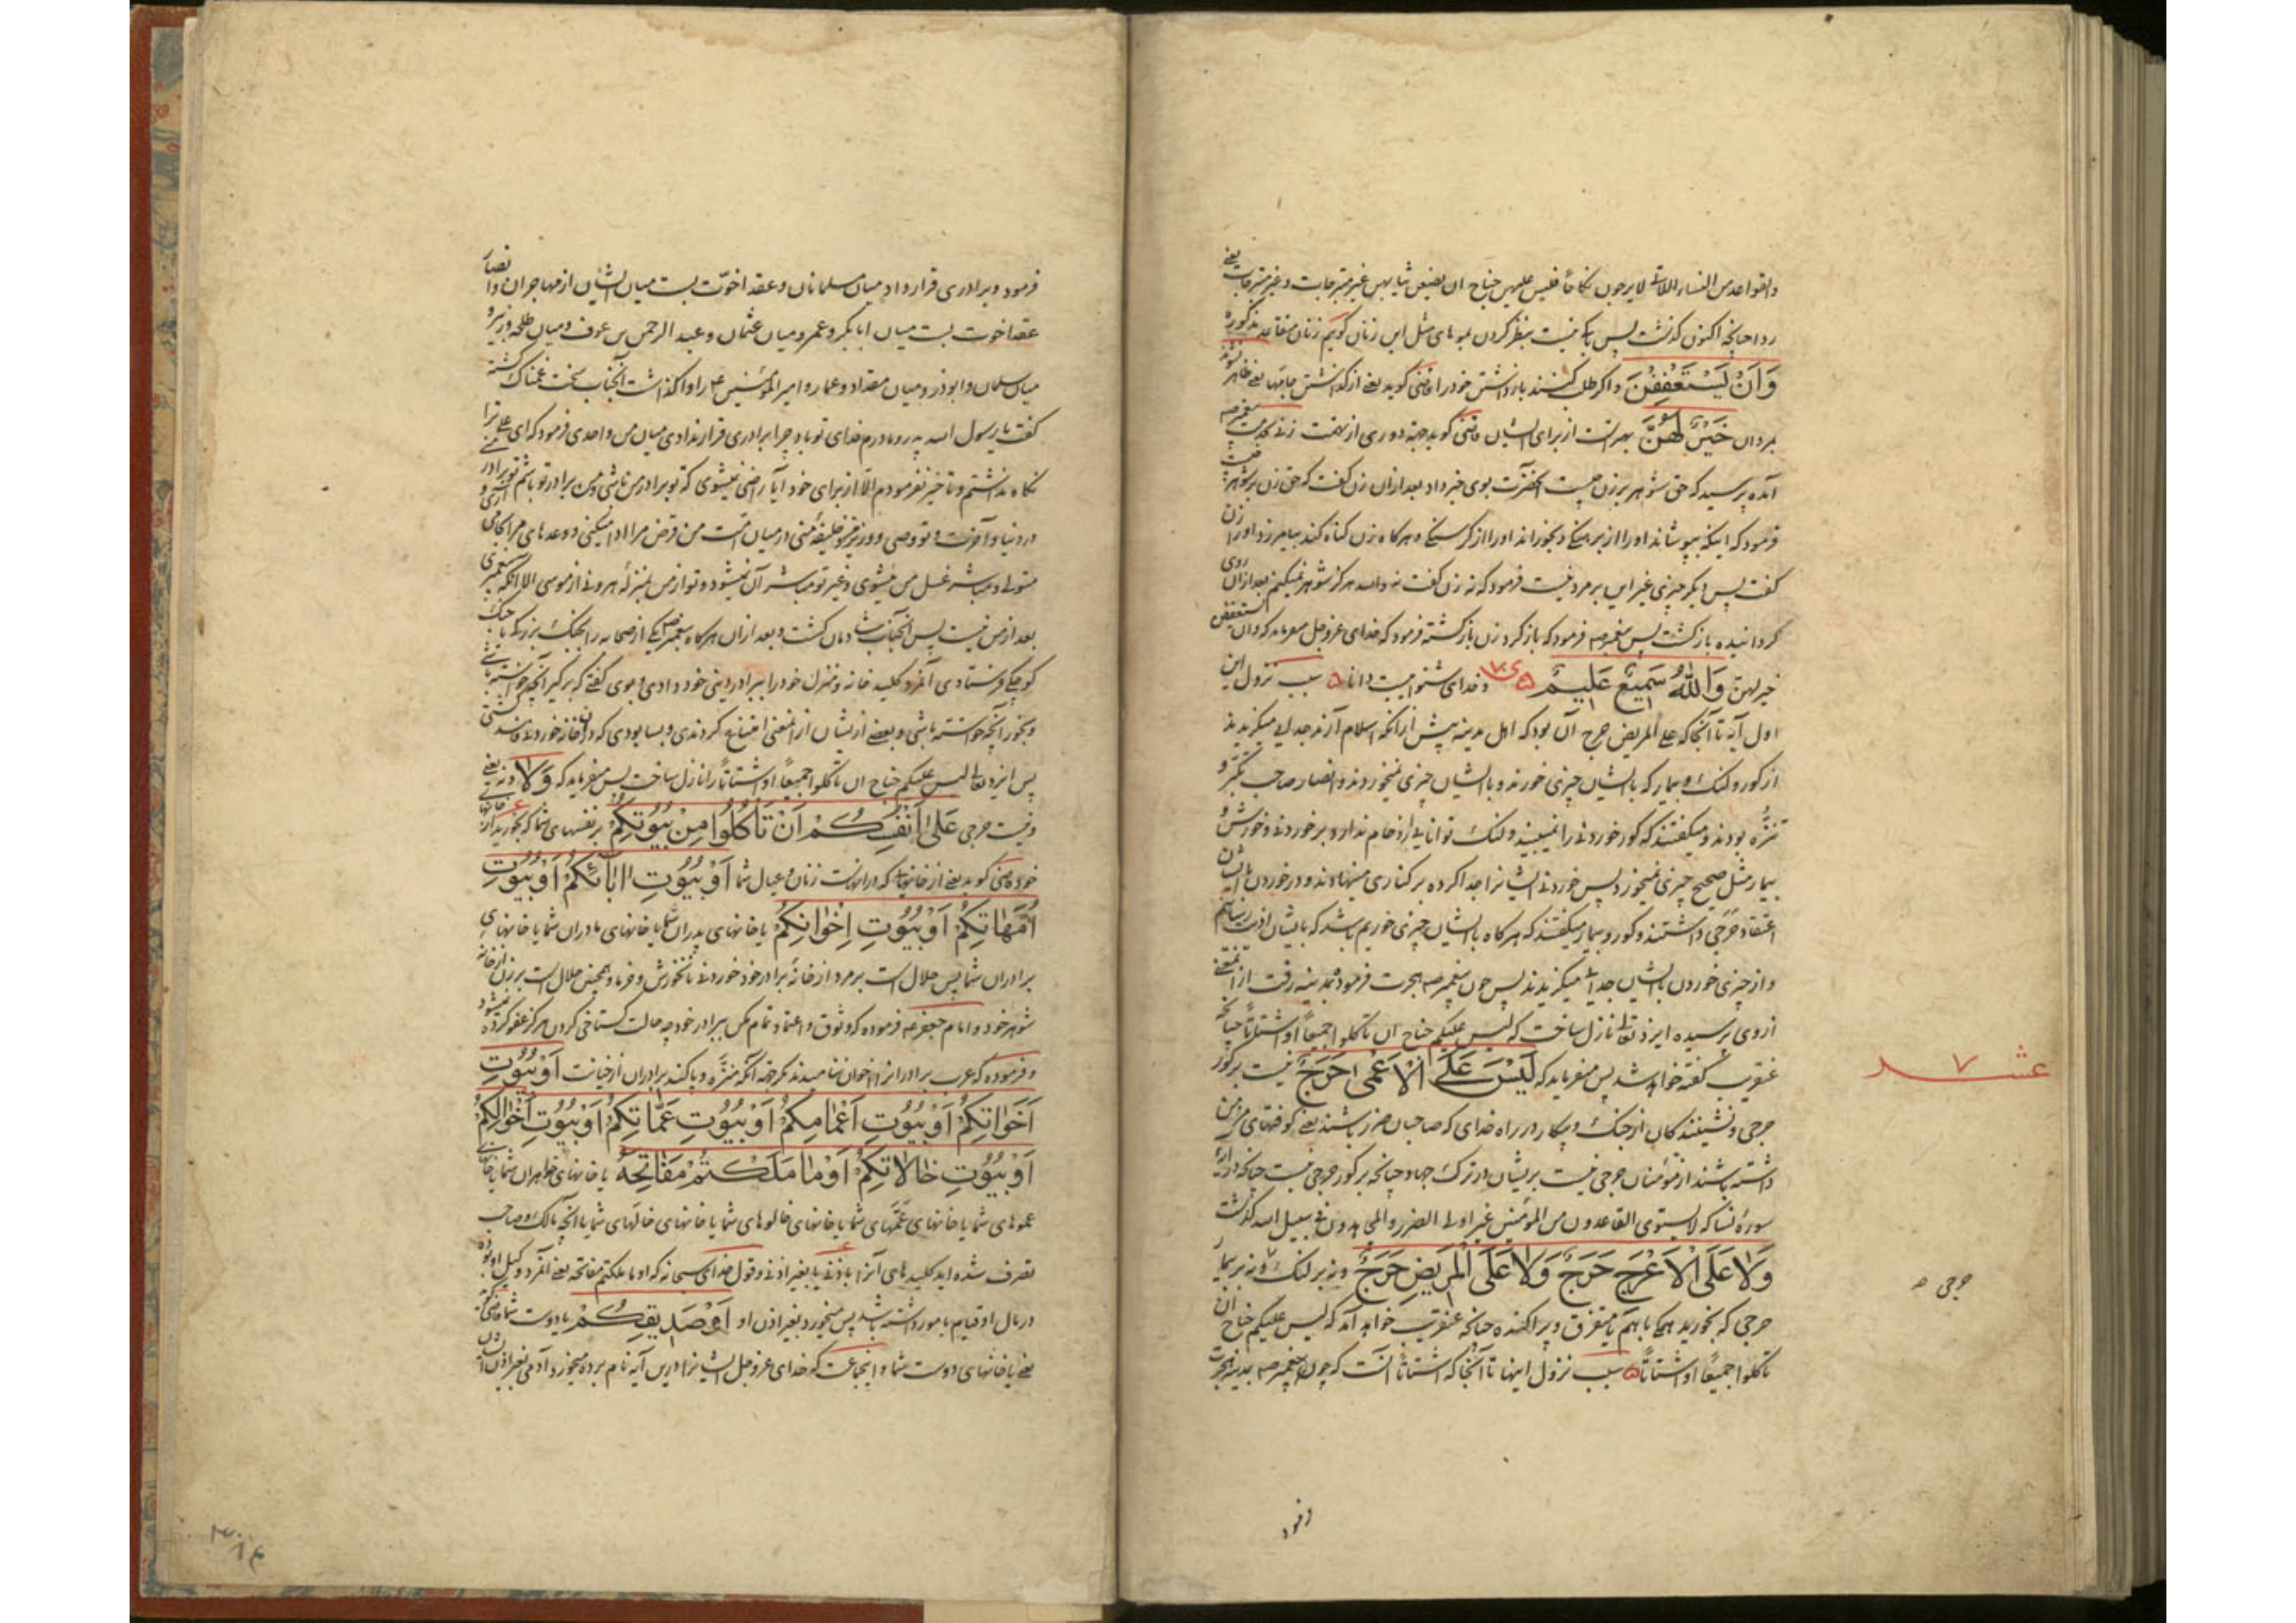 والقواعد من النساء اللاتی لایرجون نکاحاً فلیس علیهن جناح ان یضعن ثیابهن غیر متبرجات وغیر متبرجات یعنی
ردا چنانچه اکنون گذشت پس باک نیست بنظر کردن بموهای مثل این زنان گویم زنان متقاعد مذکوره
وَاَنْ یَسْتَعْفِفْنَ واگر طلب کنند بازداشتن خود را قمّی گوید یعنی از گذاشتن جامها یعنی ظاهر نشوند
بمردان خَیْرٌ لَهُنَّ بهتر است از برای ایشان
آمده پرسید که حق شوهر بر زن چیست آنحضرت بوی خبر داد بعد از آن زن گفت که حق زن بر شوهر چیست
فرمود که اینکه بپوشاند او را از برهنگی و بخوراند او را از گرسنگی و هرگاه زن گناه کند بیامرزد او را زن
گفت پس دیگر چیزی غیر این بر مرد نیست فرمود که نه زن گفت نه والله هرگز شوهر نمیکنم بعد از آن روی
گردانیده بازگشت پس پیغمبر صه فرمود که بازگرد زن بازگشته فرمود که خدای عزوجل میفرماید که وان یستعففن
خیر لهن وَاللّهُ سَمیعٌ عَلیمٌ وخدای شنواست دانا سبب نزول این
اول آیه تا آنجا که علی المریض حرج آن بود که اهل مدینه پیش از آنکه اسلام آرند جدایی میگزیدند
از کور و لنگ و بیمار که با ایشان چیزی خورند و با ایشان چیزی نمیخوردند و انصار صاحب تکبر و
تنزّه بودند و میگفتند که کور خوردنی را نمیبیند و لنگ توانایی ازدحام ندارد بر خوردنی و خورش و
بیمار مثل صحیح چیزی نمیخورد پس خوردنی ایشانرا جدا کرده بر کناری مینهادند و در خوردن با ایشان
اعتقاد حَرَجی داشتند و کور و بیمار میگفتند که هرگاه با ایشان چیزی خوریم باشد که بایشان اذیت رسانیم
و از چیزی خوردن با ایشان جدایی میگزیدند پس چون پیغمبر صه هجرت فرمود بمدینه رفت از اینمعنی
ازوی پرسیده ایزد تعالی نازل ساخت که لیس علیکم جناح ان تاکلوا جمیعاً او اشتاتاً چنانچه
عنقریب گفته خواهد شد پس میفرماید که لَیْسَ عَلَی الْاَعْمی حَرَجٌ نیست بر کور
حرجی و نشینندگان از جنگ و پیکار در راه خدای که صاحبان ضرر باشند یعنی کوفتهای مزمن
داشته باشند از مؤمنان حرجی نیست بریشان در ترک جهاد چنانچه بر کور حرجی نیست چنانچه در آیه
سوره نسا که لایستوی القاعدون من المؤمنین غیر اولی الضرر والمجاهدون فی سبیل الله گذشت
وَلا عَلَی الْاَعْرَجِ حَرَجٌ وَلا عَلَی الْمَریضِ حَرَجٌ و نه بر لنگ و نه بر بیمار
حرجی که بخورید همگی باهم یا متفرق و پراکنده چنانچه عنقریب خواهد آمد که لیس علیکم جناح ان
تاکلوا جمیعاً او اشتاتاً سبب نزول اینها تا آنجا که اشتاتاً آنست که چون پیغمبر صه بمدینه هجرت
عشـــر ۷
حرجی صه
فرمود و برادری قرار داد میان مسلمانان و عقد اخوّت بست میان ایشان از مهاجران و انصار
عقد اخوت بست میان ابابکر و عمر و میان عثمان و عبد الرحمن بن عوف و میان طلحه و زبیر و
میان سلمان و ابوذر و میان مقداد و عمار و امیر المؤمنین ع را واگذاشت آنجناب سخت غمناک گشته
گفت یا رسول الله پدر و مادرم فدای تو باد چرا برادری قرار ندادی میان من و احدی فرمود که ای علی ترا
نگاه نداشتم و تاخیر نفرمودم الا از برای خود آیا راضی نمیشوی که تو برادر من باشی و من برادر تو باشم
در دنیا و آخرت و تو وصی و وزیر و خلیفه منی در میان امت من قرض مرا ادا میکنی و وعدهای مرا
متولی و مباشر غسل من میشوی و غیر تو مباشر آن نمیشود و تو از من بمنزله هرونی از موسی الا آنکه پیغمبری
بعد از من نیست پس آنجناب شادمان گشت و بعد از آن هرگاه پیغمبر صه یکی از صحابه را بجنگ بزرگ یا جنگ
کوچکی فرستادی آنمرد کلید خانه و منزل خود را ببرادر دینی خود دادی و بوی گفتی که برگیر آنچه خواسته باشی
و بخور آنچه خواسته باشی و بعضی ازیشان از آنمعنی امتناع کردندی و بسا بودی که در آنخانه خوردنی فاسد گشتی
پس ایزد تعالی لیس علیکم جناح ان تاکلوا جمیعاً او اشتاتاً را نازل ساخت پس میفرماید که وَلا و نه یعنی
و نیست حرجی عَلی اَنْفُسِکُمْ اَنْ تَاْکُلُوا مِنْ بُیُوتِکُمْ بر نفسهای شما که بخورید از خانهای
خود قمّی گوید یعنی از خانهای که در آنست زنان و عیال شما اَوْ بُیُوتِ اباۤئِکُمْ اَوْ بُیُوتِ
اُمَّهاتِکُمْ اَوْ بُیُوتِ اِخْوانِکُمْ یا خانهای پدران شما یا خانهای مادران شما یا خانهای
برادران شما پس حلال است بر مرد از خانهٔ برادر خود خوردنی نانخورش و خرما و همچنین حلال است بر زن از خانه
شوهر خود و امام جعفر ع فرموده که وثوق و اعتماد تمام مکن ببرادر خود چه حالت گستاخی کردن هرگز عفو کرده نمیشود
و فرموده که عرب برادرانرا اخوان ننامیدند مگر جهه آنکه منزّه و پاکند برادران از خیانت اَوْ بُیُوتِ
اَخَواتِکُمْ اَوْ بُیُوتِ اَعْمامِکُمْ اَوْ بُیُوتِ عَمّاتِکُمْ اَوْ بُیُوتِ اَخْوالِکُمْ
اَوْ بُیُوتِ خالاتِکُمْ اَوْ ما مَلَکْتُمْ مَفاتِحَهُ یا خانهای خواهران شما یا خانهای
عموهای شما یا خانهای عمّهای شما یا خانهای خالوهای شما یا خانهای خالهای شما یا آنچه مالک و صاحب
تصرف شده اید کلیدهای آنرا باذن یا بغیر اذن و قول خدای سبحانه که او ما ملکتم مفاتحه یعنی آنمرد وکیل او بوده
در مال او قیام بامور داشته باشد پس میخورد بغیر اذن او اَوْ صَدیقِکُمْ یا دوست شما
یعنی یا خانهای دوست شما و اینجماعت که خدای عزوجل ایشانرا درین آیه نام برده میخورد آدمی بغیر اذن ایشان